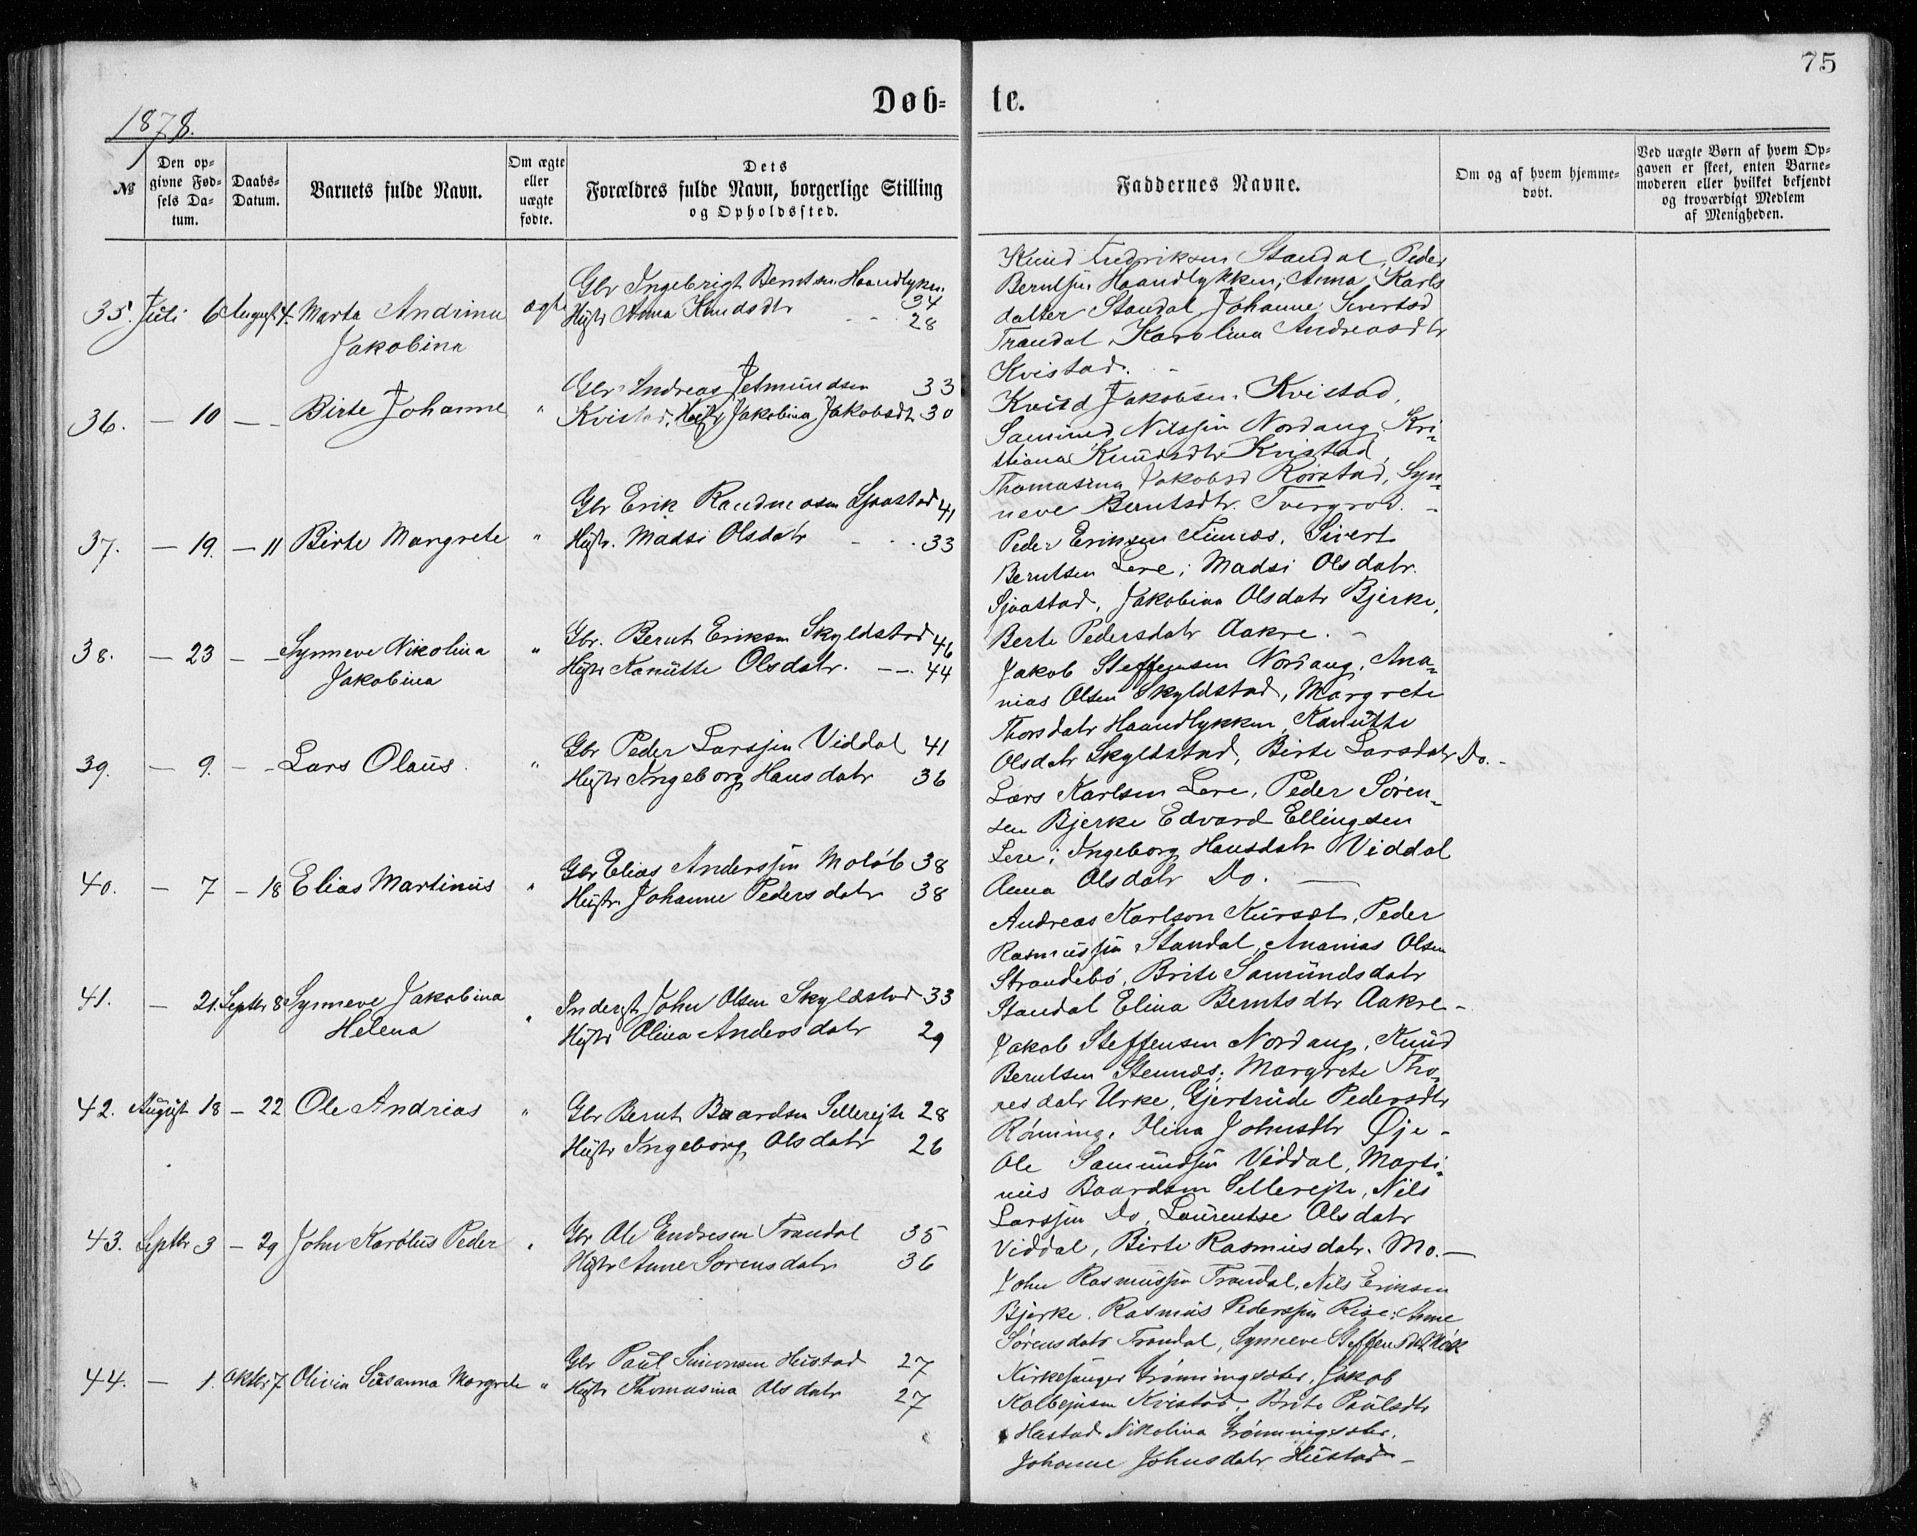 75
Døb=
te.
1878.
№
Den op=
givne Fød=
sels Da=
tum.
Daabs=
Datum.
Barnets fulde Navn.
Om ægte
eller
uægte
fødte.
Dets
Forældres fulde Navn, borgerlige Stilling
og Opholdssted.
Faddernes Navne.
Om og af hvem hjemme=
døbt.
Ved uægte Børn af hvem Op=
gaven er skeet, enten Barne=
moderen eller hvilket bekjendt
og troværdigt Medlem
af Menigheden.
35. Juli 6 August 4. Marta Andrina
Jakobina
ægte
Gbr Ingebrigt Berntsen Haandlykken
34
Hustr Anna Knudsdtr - - 28
Knud Fredriksen Standal, Peder
Berntsen Haandlykken, Anna Karls
datter Standal, Johanne Sivertsd
Trandal, Karolina Andreasdtr
Kvistad. -
36. — 10 — — Birte Johanne "
Gbr Andreas Jetmundsen 33
Kvistad, Hustr Jakobina Jakobsdt 30
Knud Jakobsen Kvistad,
Samund Nilssen Nordang, Kri=
stiana Knudsdtr Kvistad,
Thomasina Jakobsd Rørstad, Syn=
neve Berntsdtr. Tvergrod. -
37. — 19. — 11 Birte Margrete "
Gbr Erik Rasmussen Sjaastad 41
Hustr. Madsi Olsdatr - - . 33
Peder Eriksen Finnæs, Sivert
Berntsen Lere; Madsi Olsdatr.
Sjaastad, Jakobina Olsdatr Bjerke,
Berte Pedersdatr Aakre. -
38. — 23 — — Synneve Nikolina
Jakobina
"
Gbr. Bernt Eriksen Skyldstad 46
Hustr Kanutte Olsdatr. — —. 44
Jakob Steffensen Nordang, Ana=
nias Olsen Skyldstad, Margrete
Thorsdatr Haandlykken, Kanutte
Olsdatr Skyldstad, Birte Larsdatr Do. -
39. — 9. — — Lars Olaus. "
Gbr Peder Larssen Viddal 41
Hustr Ingeborg Hansdatr 36
Lars Karlsen Lere, Peder Søren=
sen Bjerke Edvard Ellingsen
Lere; Ingeborg Hansdatr Viddal
Anna Olsdatr Do. —
40. — 7 — 18 Elias Martinus "
Gbr Elias Anderssen Moløb 38
Hustr Johanne Pedersdatr 38
Andreas Karlson Kursæt, Peder
Rasmussen Standal, Ananias Olsen
Strandebø, Brite Samundsdatr
Standal Elina Berntsdtr Aakre -
41. — 21. Septbr 8 Synneve Jakobina
Helena
"
Inderst John Olsen Skyldstad 33
Hustr Olina Andersdatr 29
Jakob Steffensen Nordang, Knud
Berntsen Stennæs; Margrete Tho=
resdatr Urke, Gjertrude Pedersdtr
Rønning, Olina Johnsdtr Øje -
42. August 18 — 22 Ole Andrias "
Gbr Bernt Baardsen Sellerejte 28
Hustr Ingeborg Olsdatr 26
Ole Samundsen Viddal, Marti=
nus Baardsen Sellerejte, Nils
Larssen Do, Laurentse Olsdatr
Viddal, Birte Rasmusdatr. Mo. —
43. Septbr 3 — 29 John Karolus Peder "
Gbr Ole Endresen Trandal 35
Hustr Anne Sorensdatr 36
John Rasmussen Trandal, Nils Eriksen
Bjerke. Rasmus Pederssen Rise; Anne
Sørensdatr Trandal, Synneve Steffensdt. Møk
44. — 1. Oktbr 7 Olivia Susanna Margrete "
Gbr Paul Simonsen Hustad 27
Hustr Thomasina Olsdatr 27
Kirkesanger Grønningsæter, Jakob
Kolbejnsen Kvistad, Brite Paulsdtr
Hustad Nikolina Grønningsæter,
Johanne Johnsdatr Hustad -